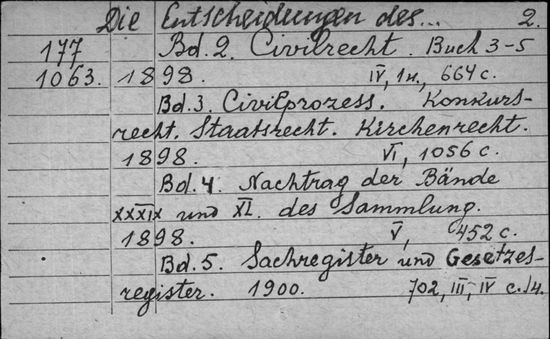 Die Entscheidungen des... 2.
177 Bd. 2. Civilrecht. Buch 3-5
1063. 1898. IV, 1н., 664 с.
Bd. 3. Civilprozess. Konkurs-
recht. Staatsrecht. Kirchenrecht.
1898. VI, 1056 с.
Bd. 4. Nachtrag der Bände
XXXIX und XL. des Sammlung.
1898. V, 452 с.
Bd. 5. Sachregister und Gesetzes-
register. 1900. 702, III, IV с.